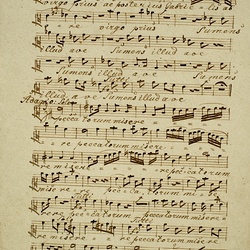 Virgo prius ac posterius Gabrielis
o re virgo prius Sumens
illud ave Sumens illud ave
Sumens illud ave
illud ave sumens illud ave
Adagio Solo
peccatorum miserere
re peccatorum misere
re miserere peccatorum
miserere peccatorum misere
rere peccatorum peccatorum misere
re peccatorum miserere